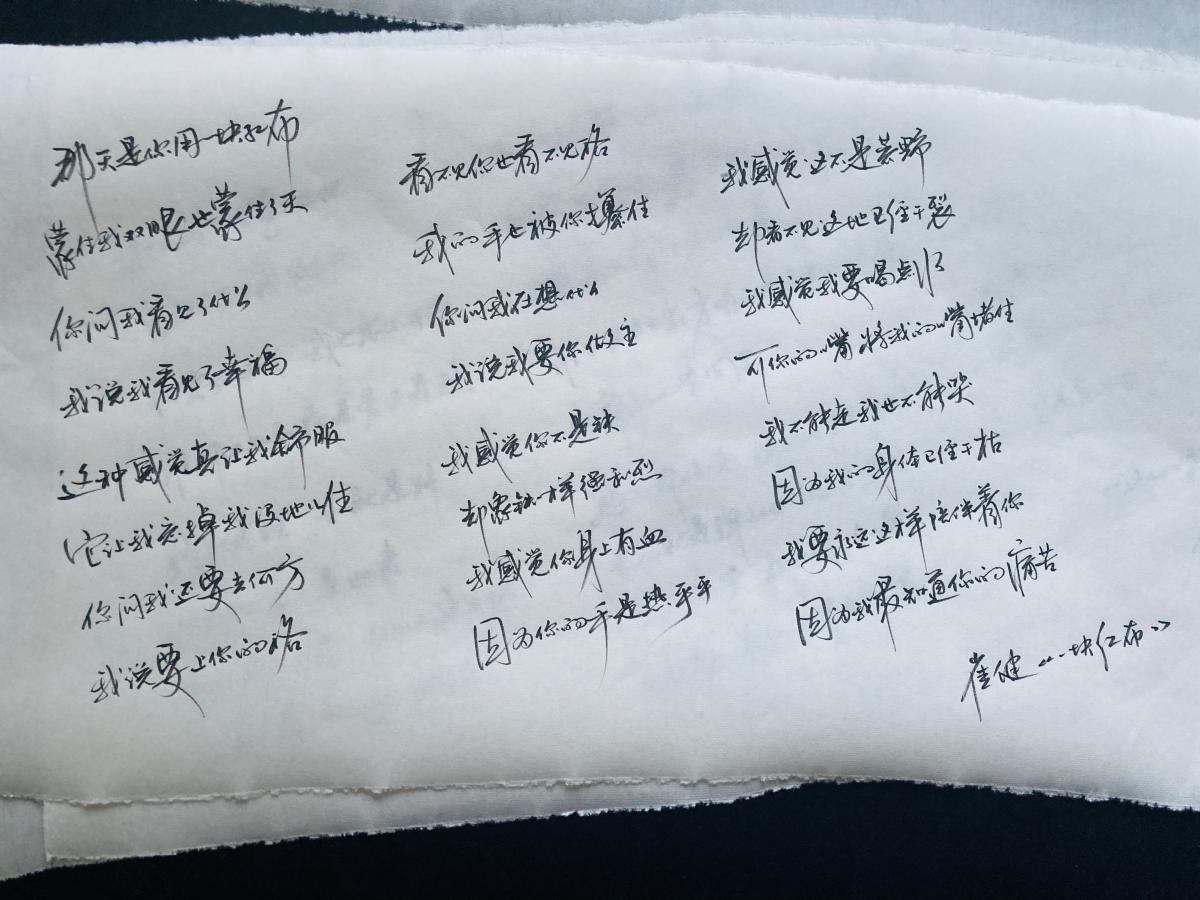 那天是你用一块红布
蒙住我双眼也蒙住了天
你问我看见了什么
我说我看见了幸福
这种感觉真让我舒服
它让我忘掉我没地儿住
你问我还要去何方
我说要上你的路
看不见你也看不见路
我的手也被你攥住
你问我在想什么
我说我要你做主
我感觉你不是铁
却象铁一样强和烈
我感觉你身上有血
因为你的手是热乎乎
我感觉这不是荒野
却看不见这地已经干裂
我感觉我要喝点水
可你的嘴将我的嘴堵住
我不能走我也不能哭
因为我的身体已经干枯
我要永远这样陪伴着你
因为我最知道你的痛苦
崔健《一块红布》